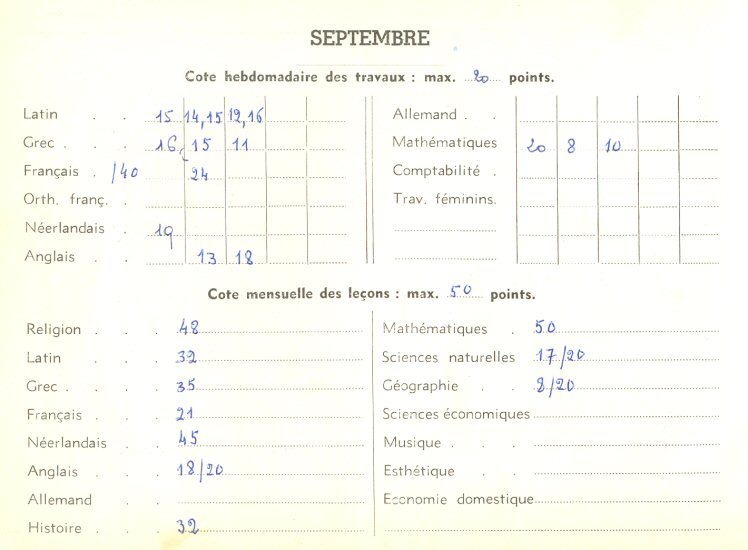 SEPTEMBRE
Cote hebdomadaire des travaux : max. 20 points.
Latin . . 15 14,15 12,16
Grec . . 16 15 11
Français . /40 24
Orth. franç. .
Néerlandais . 19
Anglais . . 13 18
Allemand . .
Mathématiques 20 8 10
Comptabilité .
Trav. féminins.
Cote mensuelle des leçons : max. 50 points.
Religion . . . 48
Latin . . . 32
Grec . . . 35
Français . . . 21
Néerlandais . . 45
Anglais . . . 18/20
Allemand . .
Histoire . . . 32
Mathématiques . 50
Sciences naturelles 17/20
Géographie . . 8/20
Sciences économiques
Musique . . .
Esthétique . .
Economie domestique